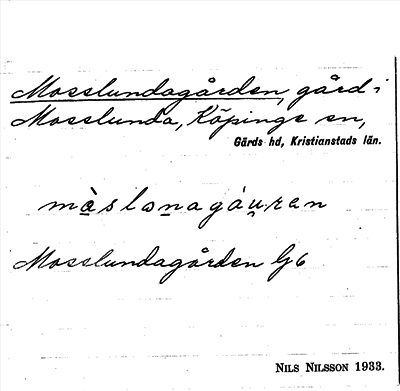 Mosslundagården, gård i
Mosslunda, Köpinge sn,
Gärds hd, Kristianstads län.
Mosslundagården G6
NILS NILSSON 1933.